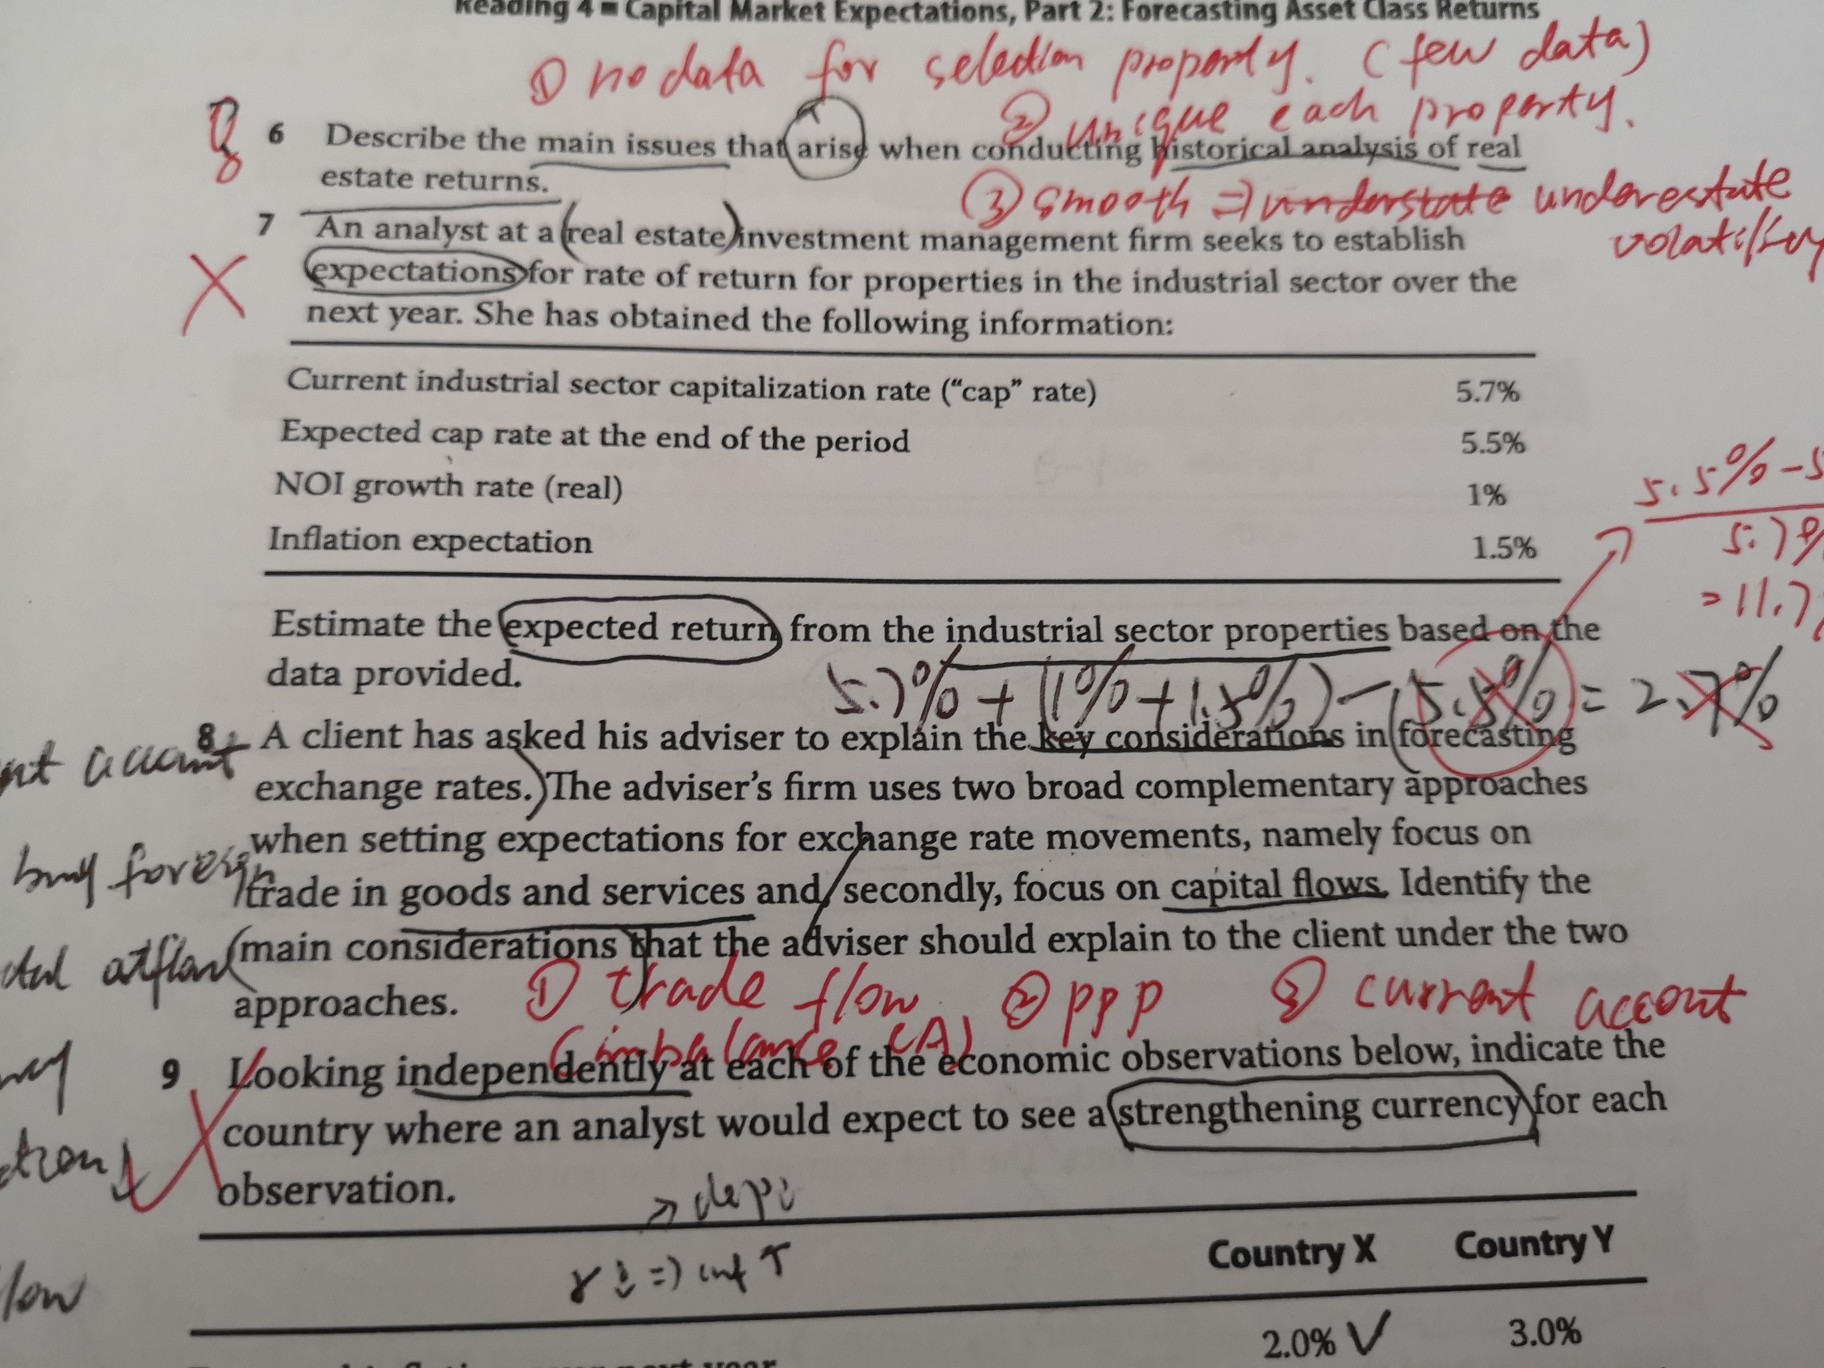 Reading 4 ■ Capital Market Expectations, Part 2: Forecasting Asset Class Returns
① no data for selection property. (few data)
② unique each property.
6 Describe the main issues that arise when conducting historical analysis of real
estate returns.
③ smooth ⇒ understate underestate
volatility
7 An analyst at a real estate investment management firm seeks to establish
expectations for rate of return for properties in the industrial sector over the
next year. She has obtained the following information:
Current industrial sector capitalization rate (“cap” rate) 5.7%
Expected cap rate at the end of the period 5.5%
NOI growth rate (real) 1%
Inflation expectation 1.5%
5.5% - 5
5.7%
= 11.7
Estimate the expected return from the industrial sector properties based on the
data provided.
5.7% + (1% + 1.5%) - (5.5%) = 2.7%
8 A client has asked his adviser to explain the key considerations in forecasting
exchange rates. The adviser’s firm uses two broad complementary approaches
when setting expectations for exchange rate movements, namely focus on
trade in goods and services and secondly, focus on capital flows. Identify the
main considerations that the adviser should explain to the client under the two
approaches.
account
buy foreign
① trade flow ② PPP ③ current account
(imbalance CA)
9 Looking independently at each of the economic observations below, indicate the
country where an analyst would expect to see a strengthening currency for each
observation.
→ depi
r ↓ => inf ↑
low
Country X Country Y
2.0% ✓ 3.0%
next year